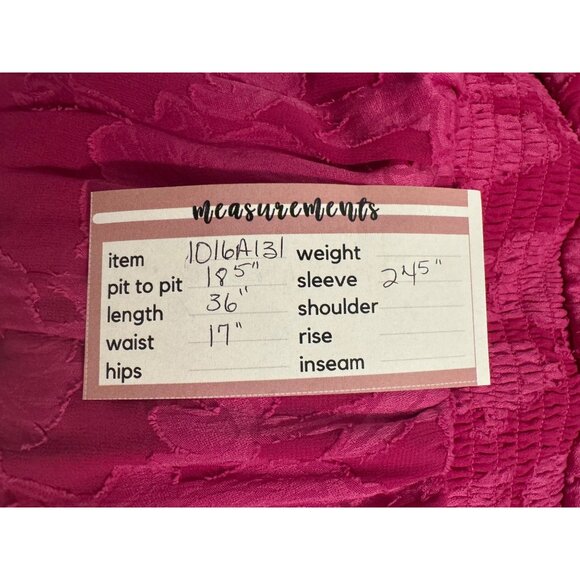 measurements
item 1016A131 weight
pit to pit 18⁵" sleeve 24⁵"
length 36" shoulder
waist 17" rise
hips inseam